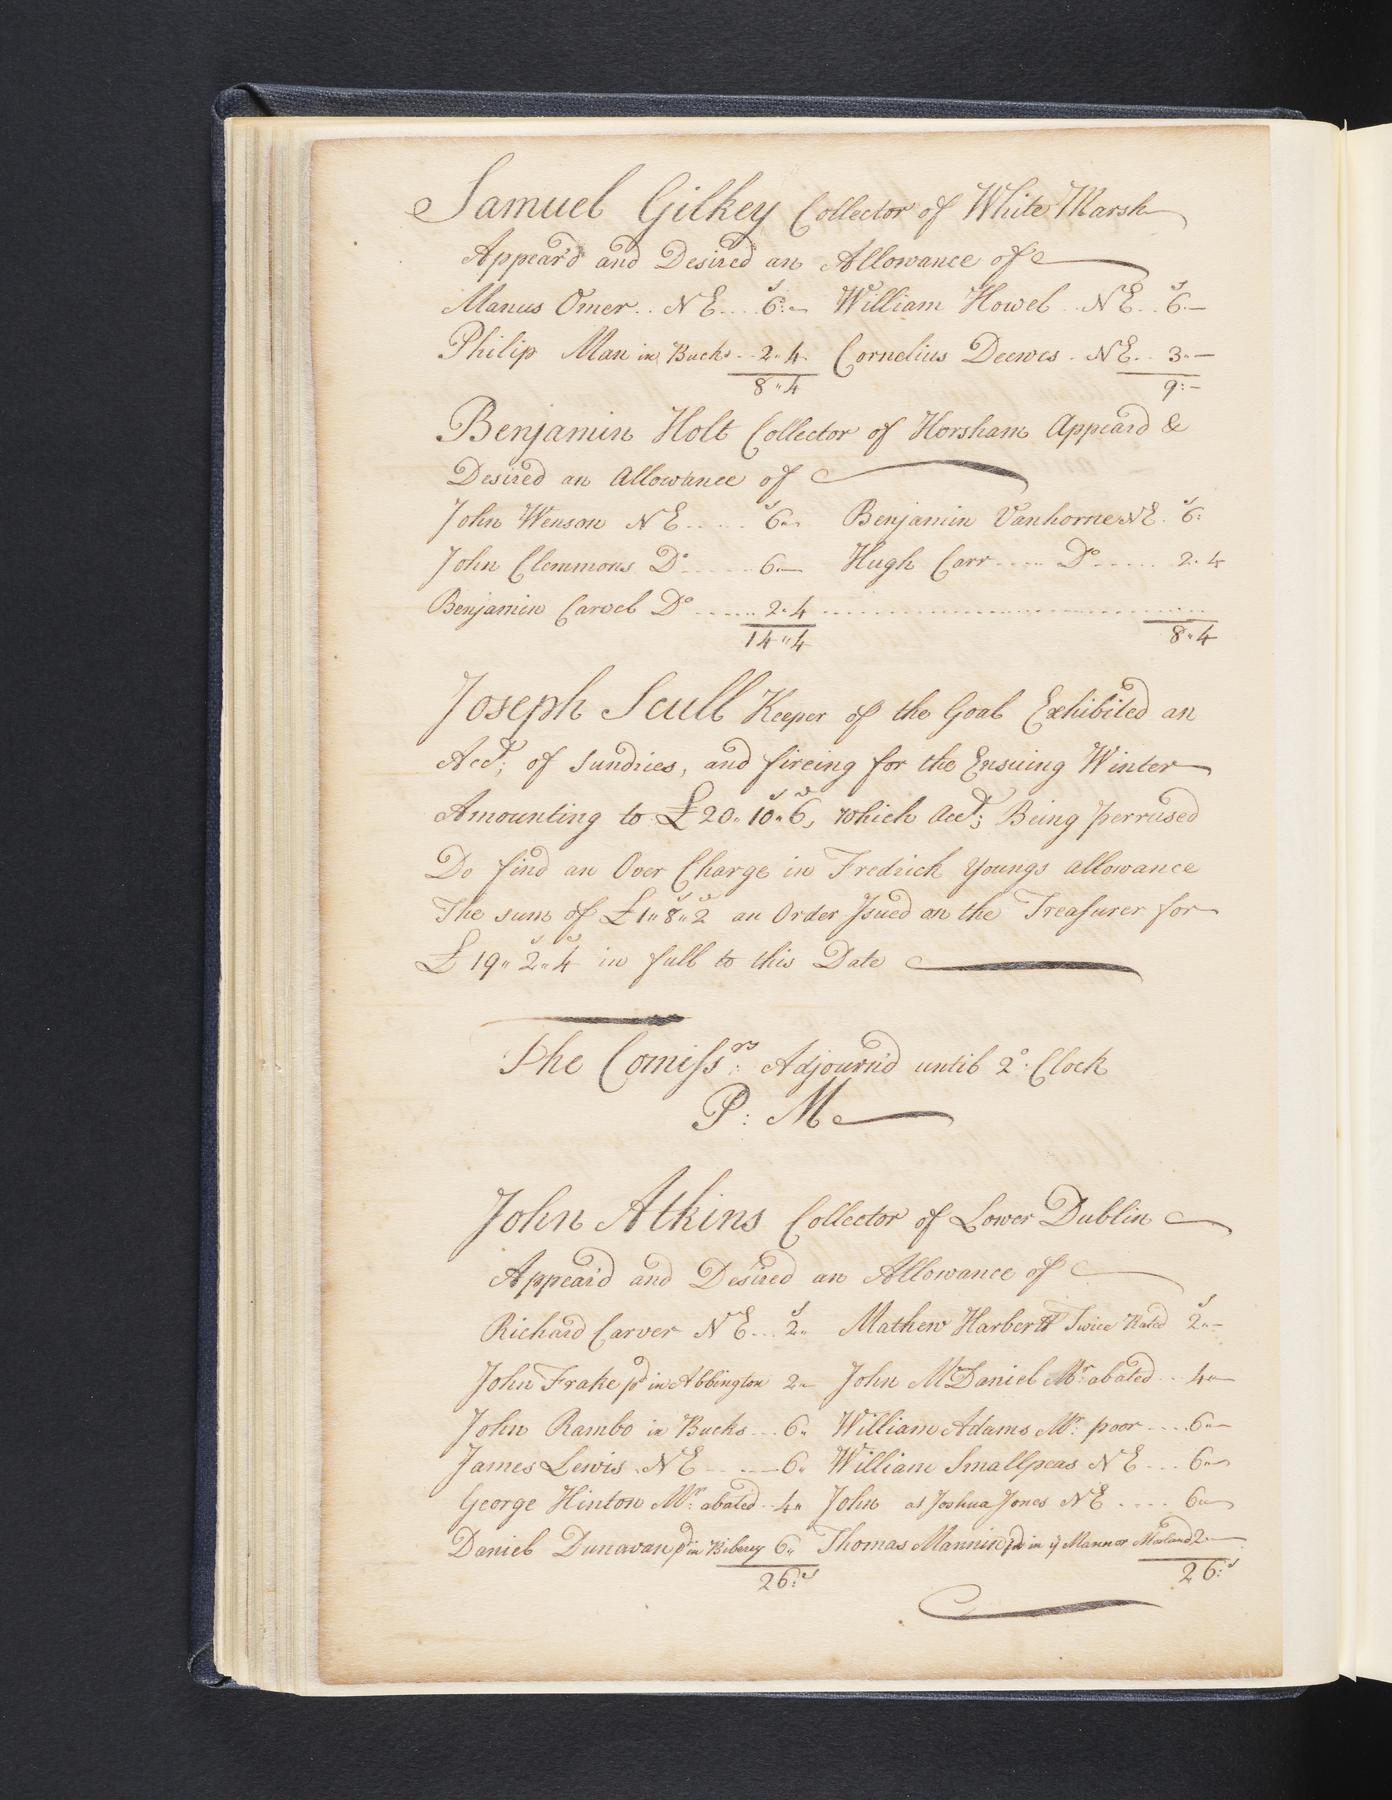 Samuel Gilkey Collector of White Marsh
Appear'd and Desired an Allowance of
Manus Omer .. NE .... 6:- William Howel .. NE .. 6.-
Philip Man in Bucks .. 2.4. Cornelius Deewes . NE .. 3.-
8"4 9:-
Benjamin Holt Collector of Horsham Appeard &
Desired an allowance of
John Wenson NE ..... 6"- Benjamin Vanhorne NE . 6:
John Clemmons Do ..... 6.- Hugh Carr ..... Do ..... 2.4
Benjamin Carvel Do ...... 2.4
14"4 8"4
Joseph Scull Keeper of the Goal Exhibited an
Acct; of sundries, and fireing for the Ensuing Winter
Amounting to £20"10s"6d, which acct; Being perrused
Do find an Over Charge in Fredrick Youngs allowance
The sum of £1"8s"2d an Order Isued on the Treasurer for
£19"2s"4d in full to this Date
The Comissrs: Adjourn'd until 2o: Clock
P: M
John Atkins Collector of Lower Dublin
Appear'd and Desired an Allowance of
Richard Carver NE ... 2s" Mathew Harbertt Twice Rated 2s"-
John Frake pd in Abbington 2"- John McDaniel Mr abated .. 4"-
John Rambo in Bucks ... 6" William Adams Mr: poor .... 6"-
James Lewis . NE ..... 6" William Smallpeas NE ... 6"-
George Hinton Mr: abated .. 4" John as Joshua Jones NE .... 6"-
Daniel Dunavan pd in Biberey 6" Thomas Mannin pd in ye Mannor Morland 2"-
26:s 26:s